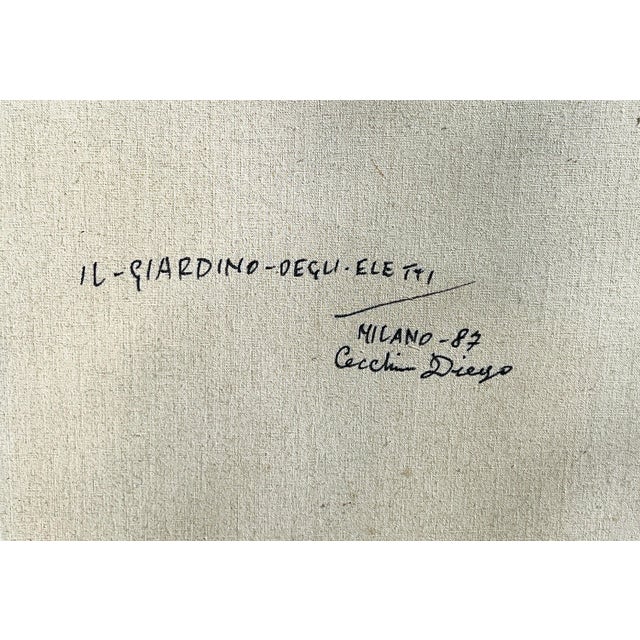 IL-GIARDINO-DEGLI-ELETTI
MILANO-87
Cecchin Diego